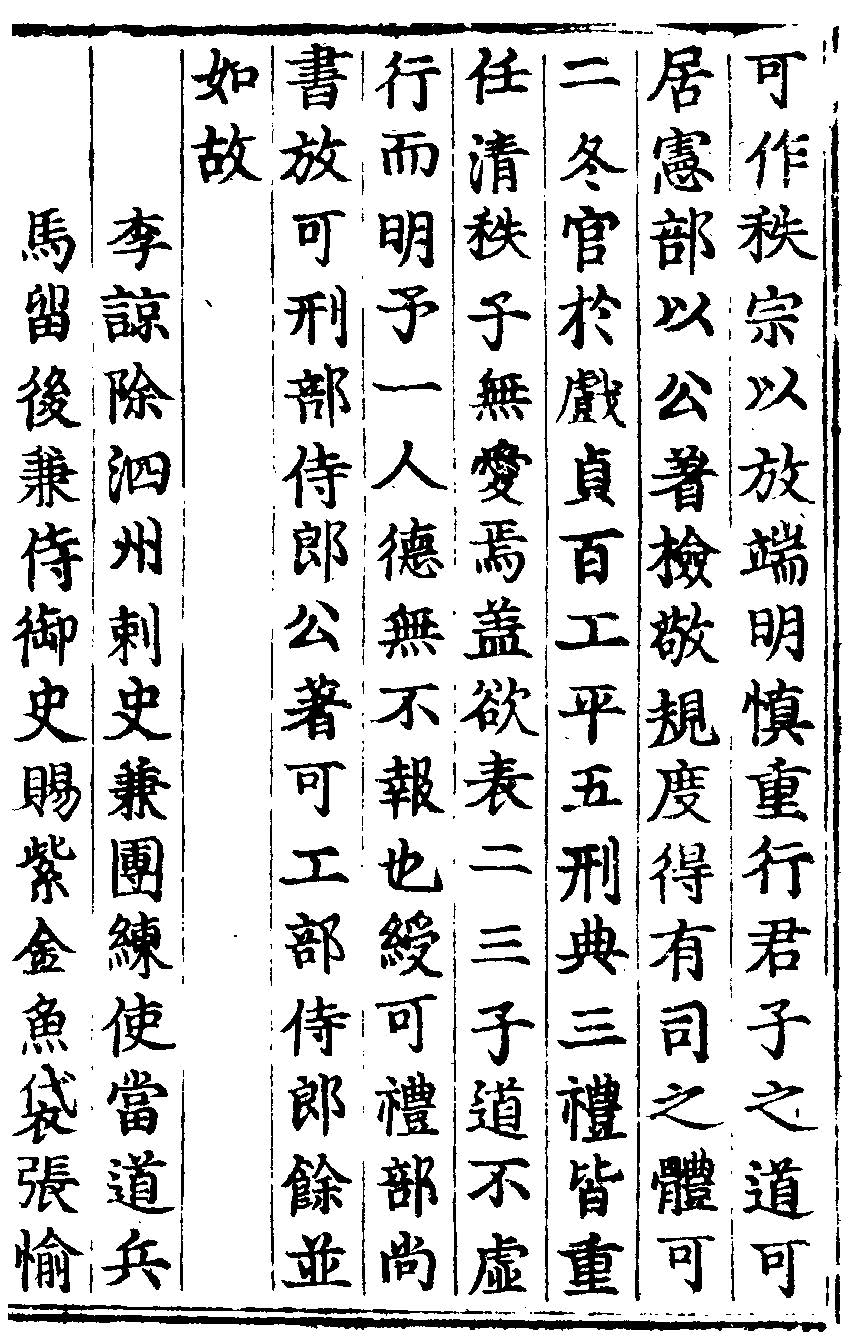 可作秩宗以放端明慎重行君子之道可
居憲部以公著檢敬規度得有司之體可
二冬官於戲貞百工平五刑典三禮皆重
任清秩子無愛焉盖欲表二三子道不虛
行而明予一人德無不報也綬可禮部尚
書放可刑部侍郎公著可工部侍郎餘並
如故
李諒除泗州刺史兼團練使當道兵
馬留後兼侍御史賜紫金魚袋張愉